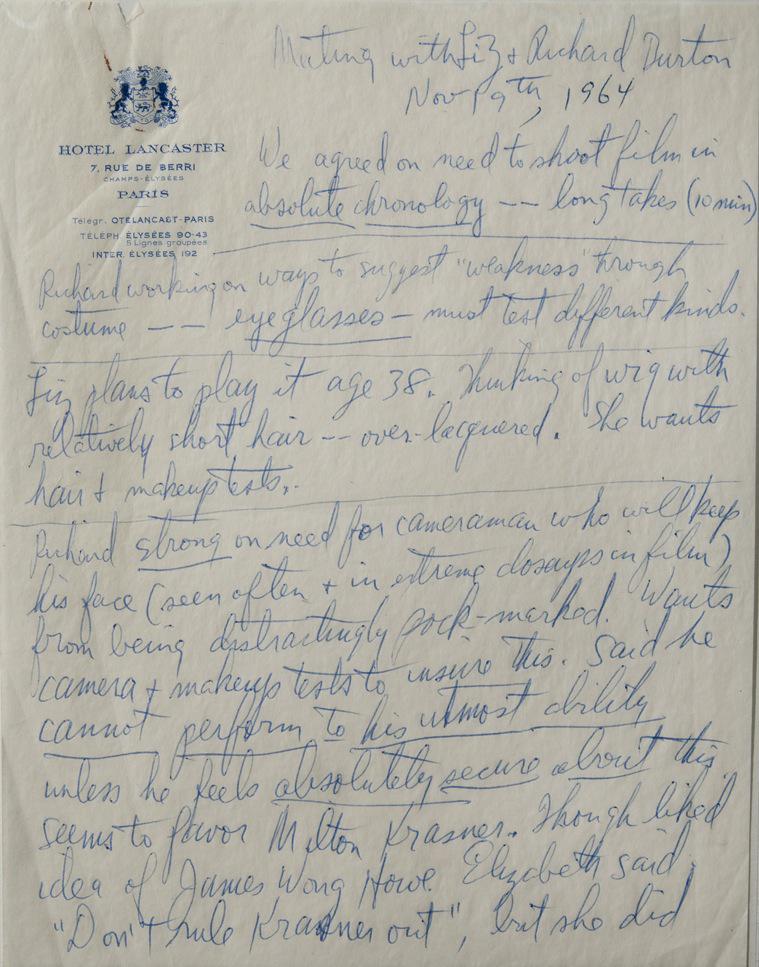 Meeting with Liz + Richard Burton
Nov 9th, 1964
HOTEL LANCASTER
7, RUE DE BERRI
CHAMPS-ÉLYSÉES
PARIS
Télégr. OTELANCAST-PARIS
TÉLÉPH. ÉLYSÉES 90-43
5 Lignes groupées
INTER. ÉLYSÉES 192
We agreed on need to shoot film in
absolute chronology -- long takes (10 min)
Richard working on ways to suggest "weakness" through
costume -- eyeglasses - must test different kinds.
Liz plans to play it age 38. Thinking of wig with
relatively short hair -- over-lacquered. She wants
hair + makeup tests.
Richard strong on need for cameraman who will keep
his face (seen often + in extreme closeups in film)
from being distractingly pock-marked. Wants
camera + makeup tests to insure this. Said he
cannot perform to his utmost ability
unless he feels absolutely secure about this
seems to favor Milton Krasner. Though liked
idea of James Wong Howe. Elizabeth said
"Don't rule Krasner out", but she did